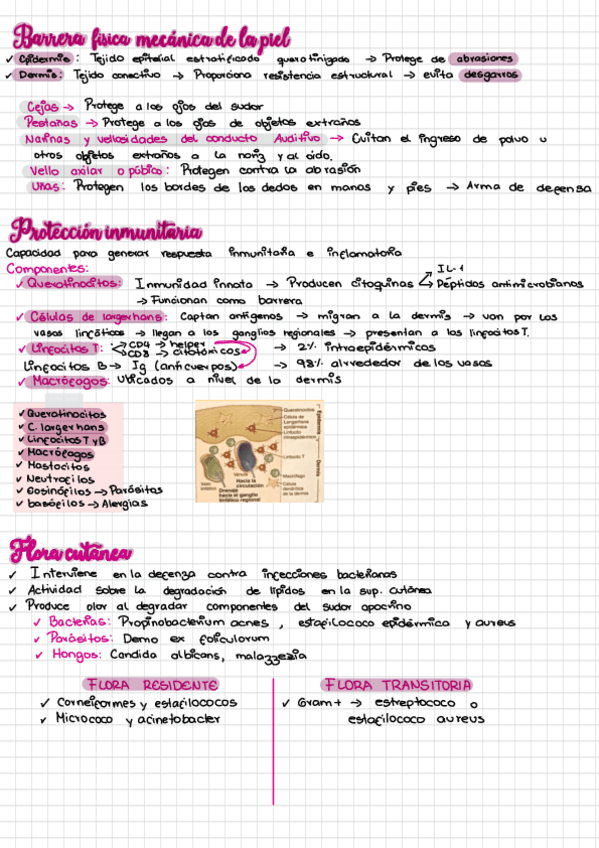 Barrera física mecánica de la piel
✓ Epidermis: Tejido epitelial estratificado queratinizado → Protege de abrasiones
✓ Dermis: Tejido conectivo → Proporciona resistencia estructural → evita desgarros
Cejas → Protege a los ojos del sudor
Pestañas → Protege a los ojos de objetos extraños
Narinas y vellosidades del conducto Auditivo → Evitan el ingreso de polvo u
otros objetos extraños a la nariz y al oído.
Vello axilar o púbico: Protegen contra la abrasión
Uñas: Protegen los bordes de los dedos en manos y pies → Arma de defensa
Protección inmunitaria
Capacidad para generar respuesta inmunitaria e inflamatoria
Componentes:
IL-1
✓ Queratinocitos: Inmunidad innata → Producen citoquinas → Péptidos antimicrobianos
→ Funcionan como barrera
✓ Células de largerhans: Captan antígenos → migran a la dermis → van por las
vasos linfáticos → llegan a los ganglios regionales → presentan a las linfocitos T.
✓ Linfocitos T: → CD4 → helper → 2% intraepidérmicos
→ CD8 → citotóxicos
Linfocitos B → Ig (anticuerpos) → 98% alrrededor de los vasos
✓ Macrófagos: Ubicados a nivel de la dermis
✓ Queratinocitos
✓ C. largerhans
✓ Linfocitos T y B
✓ Macrófagos
✓ Mastocitos
✓ Neutrofilos
✓ Eosinófilos → Parásitos
✓ basófilos → Alergias
Queratinocitos
Célula de
Langerhans
epidérmica
Linfocito
intraepidérmico
Linfocito T
Macrófago
Célula
dendrítica
de la dermis
Epidermis
Dermis
Vaso
linfático
Vénula
Hacia la
circulación
Drenaje
hacia el ganglio
linfático regional
Flora cutánea
✓ Interviene en la defenza contra infecciones bacterianas
✓ Actividad sobre la degradación de lípidos en la sup. cutánea
✓ Produce olor al degradar componentes del sudor apocrino
✓ Bacterias: Propinobacterium acnes, estafilococo epidérmica y aureus
✓ Parásitos: Demo ex foliculorum
✓ Hongos: Candida albicans, malazzezia
FLORA RESIDENTE
✓ Corneiformes y estafilococos
✓ Micrococo y acinetobacter
FLORA TRANSITORIA
✓ Gram+ → estreptococo o
estafilococo aureus